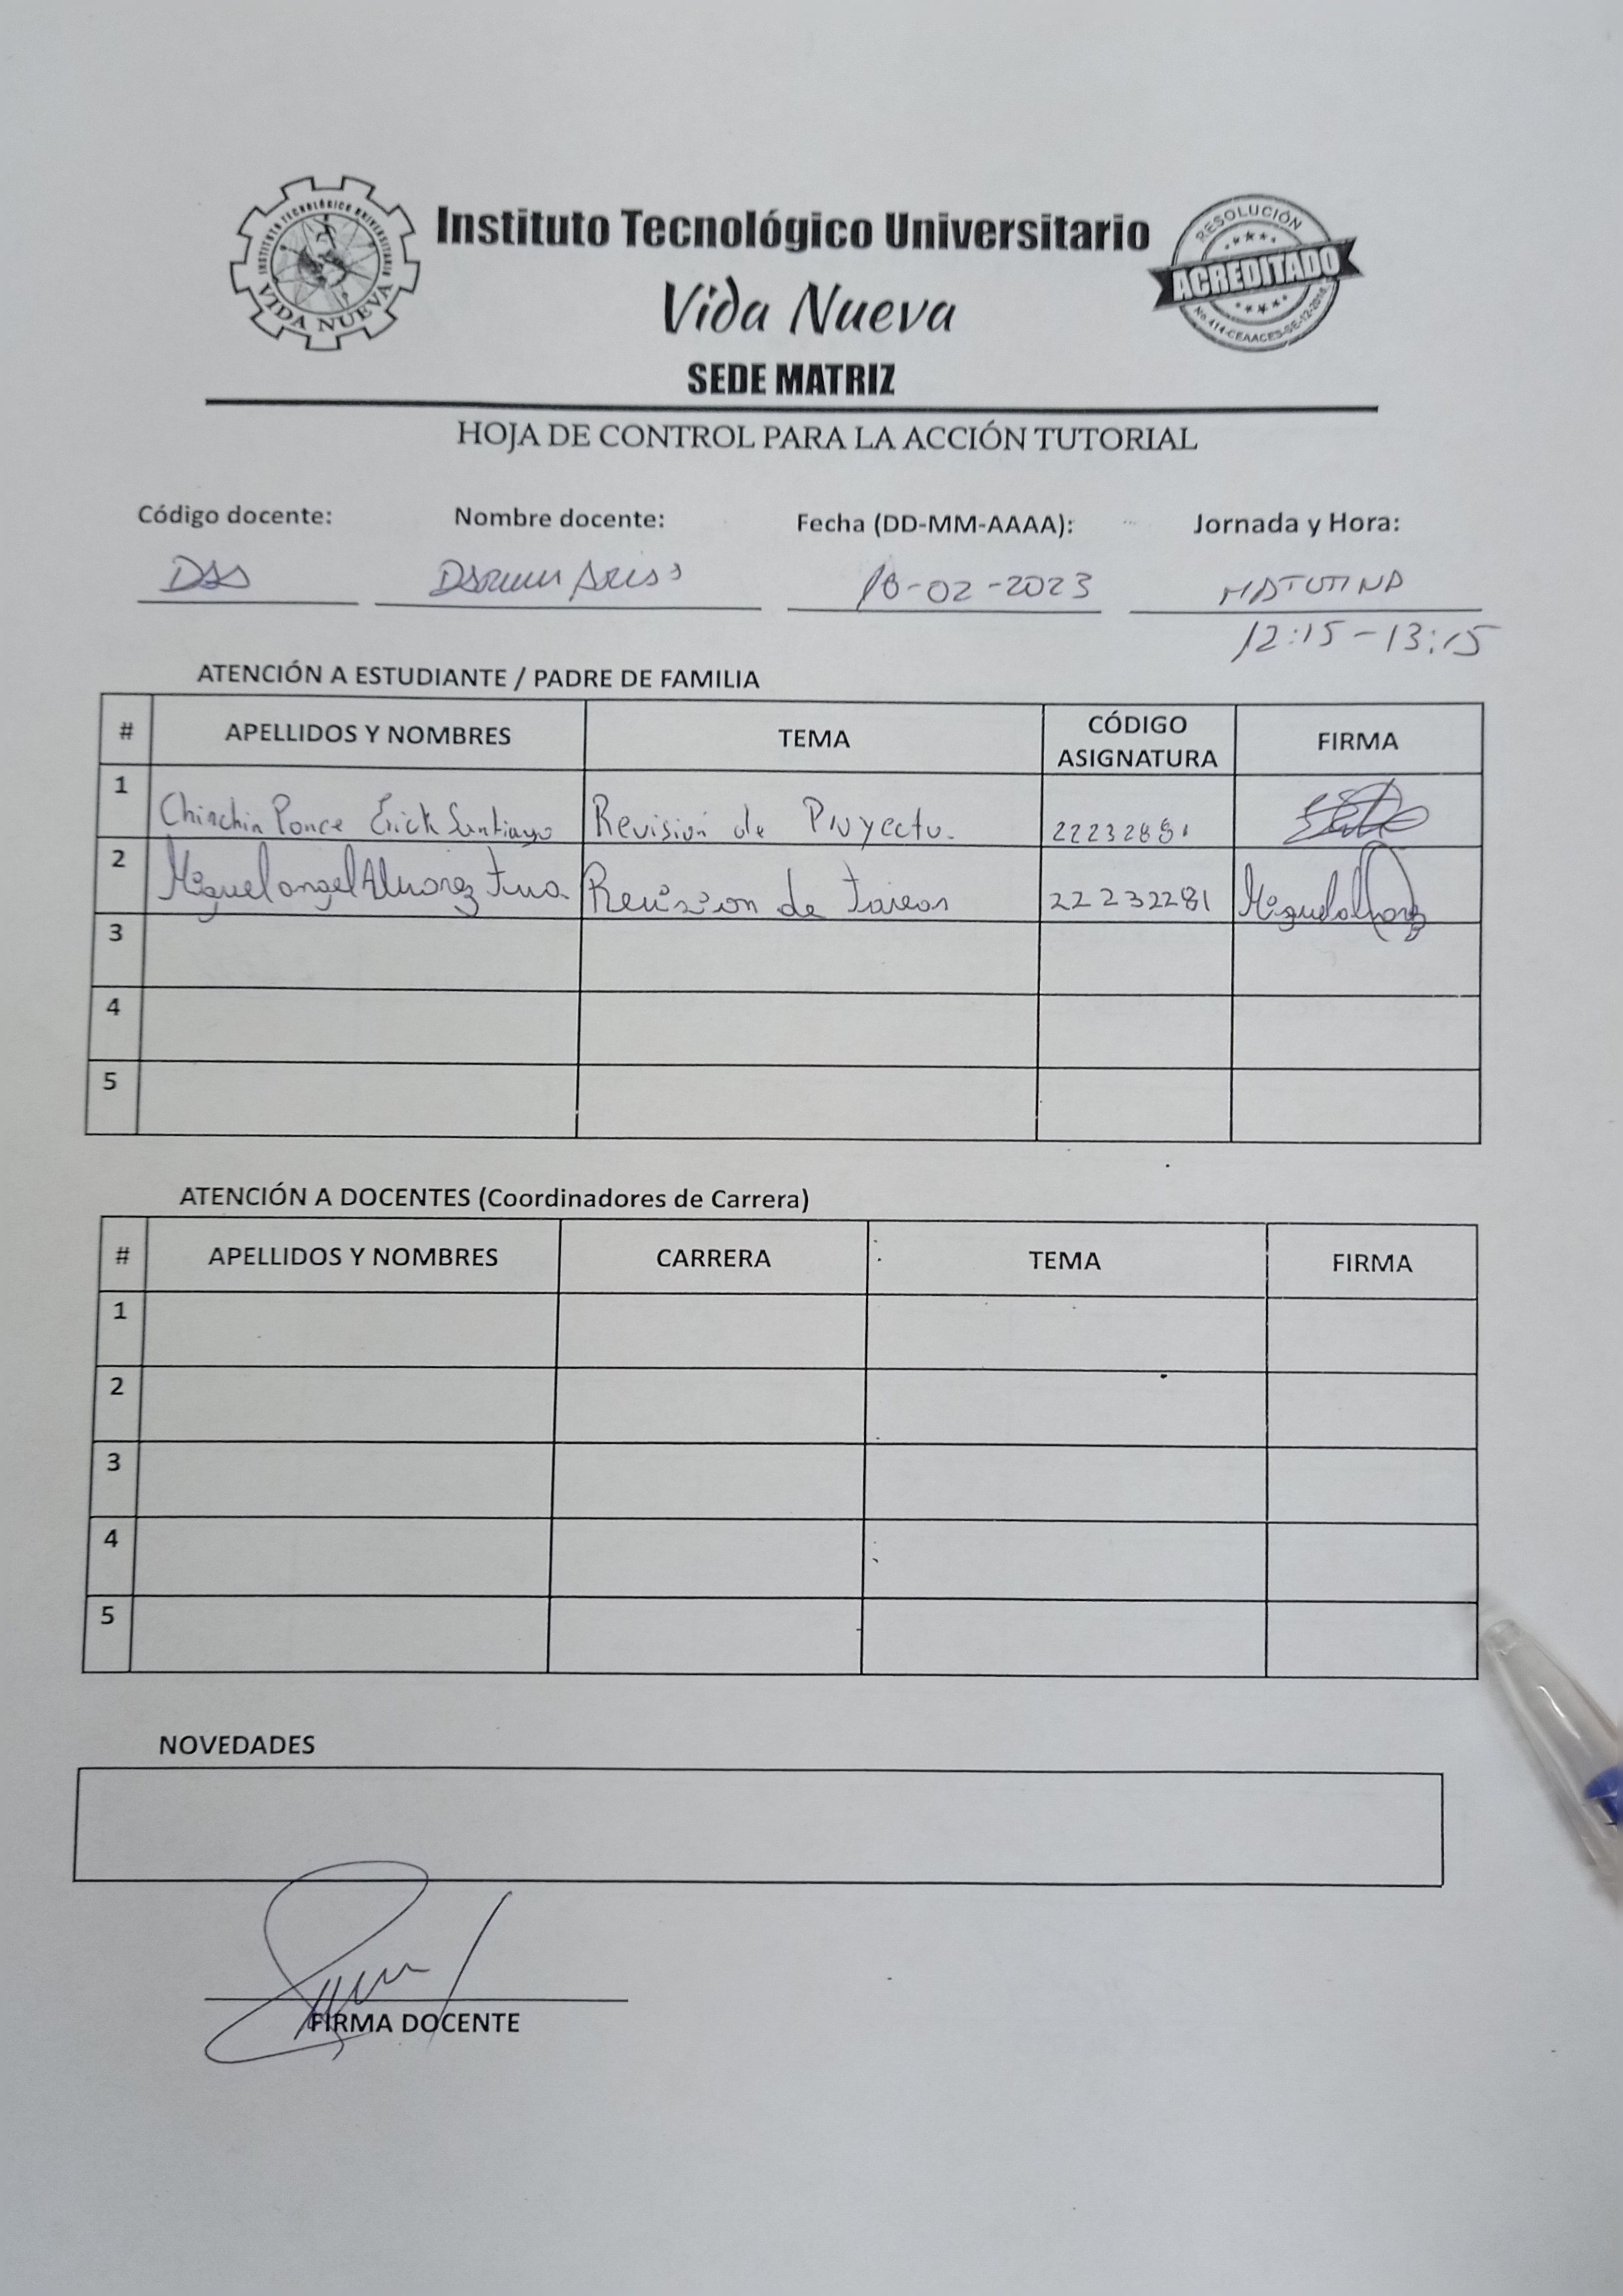 INSTITUTO TECNOLÓGICO UNIVERSITARIO
VIDA NUEVA
Instituto Tecnológico Universitario
Vida Nueva
SEDE MATRIZ
RESOLUCIÓN
ACREDITADO
HOJA DE CONTROL PARA LA ACCIÓN TUTORIAL
Código docente: Nombre docente: Fecha (DD-MM-AAAA): Jornada y Hora:
-02-2023 MATUTINA
12:15-13:15
ATENCIÓN A ESTUDIANTE / PADRE DE FAMILIA
# APELLIDOS Y NOMBRES TEMA CÓDIGO ASIGNATURA FIRMA
1 Chinchin Ponce Erick Santiago Revisión de Proyecto.
2 Miguel angel Revision de 22232281
3
4
5
ATENCIÓN A DOCENTES (Coordinadores de Carrera)
# APELLIDOS Y NOMBRES CARRERA TEMA FIRMA
1
2
3
4
5
NOVEDADES
FIRMA DOCENTE